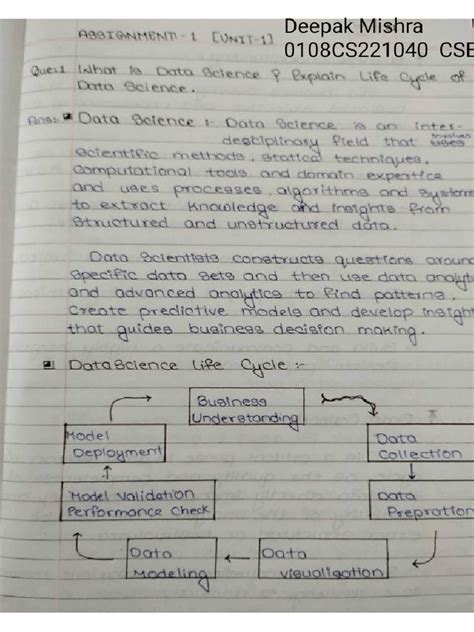 Deepak Mishra
0108CS221040 CSE
ASSIGNMENT - 1 [UNIT-1]
Que:1 What is Data Science ? Explain Life Cycle of
Data Science.
Ans:- Data Science :- Data Science is an inter-
desciplinary field that uses involves
scientific methods, statical techniques,
computational tools and domain expertice
and uses processes, algorithms and systems
to extract knowledge and insights from
structured and unstructured data.
Data Scientists constructs questions around
specific data sets and then use data analyt
and advanced analytics to find patterns,
create predictive models and develop insight
that guides business decision making.
Data Science Life Cycle :-
Business
Understanding
Model
Deployment
Data
Collection
Model Validation
Performance Check
Data
Prepration
Data
Modeling
Data
visualisation